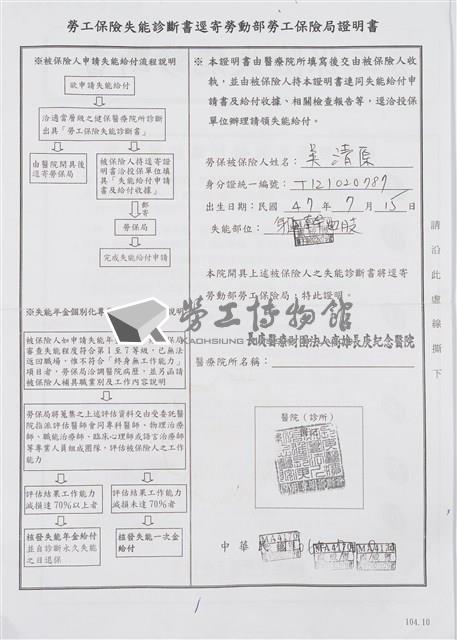 勞工保險失能診斷書逕寄勞動部勞工保險局證明書
※被保險人申請失能給付流程說明
欲申請失能給付
洽適當層級之健保醫療院所診斷
出具「勞工保險失能診斷書」
由醫院開具後
逕寄勞保局
被保險人持逕寄證
明書洽投保單位填
具「失能給付申請
書及給付收據」
郵
寄
勞保局
完成失能給付申請
※失能年金個別化專
說明
被保險人如申請失能年
保局
審查失能程度符合第1至7等級，已無法
返回職場，惟不符合「終身無工作能力」
項目者，勞保局洽調醫院病歷，並另函請
被保險人補具職業別及工作內容說明
勞保局將蒐集之上述評估資料交由受委託醫
院指派評估醫師會同專科醫師、物理治療
師、職能治療師、臨床心理師或語言治療師
等專業人員組成團隊，評估被保險人之工作
能力
評估結果工作能力
減損達70%以上者
評估結果工作能力
減損未達70%者
核發失能年金給付
並自診斷永久失能
之日退保
核發失能一次金
給付
※ 本證明書由醫療院所填寫後交由被保險人收
執，並由被保險人持本證明書連同失能給付申
請書及給付收據、相關檢查報告等，逕洽投保
單位辦理請領失能給付。
勞保被保險人姓名：吳清
身分證統一編號：T121020787
出生日期：民國 47 年 7 月 15 日
失能部位：
本院開具上述被保險人之失能診斷書將逕寄
勞動部勞工保險局，特此證明。
勞工博物館
KAOHSIUNG MUSEUM OF LABOR
長庚醫療財團法人高雄長庚紀念醫院
醫療院所名稱：
醫院（診所）
中華民國
MA4170
MA4170
MA4170
請沿此虛線撕下
104.10